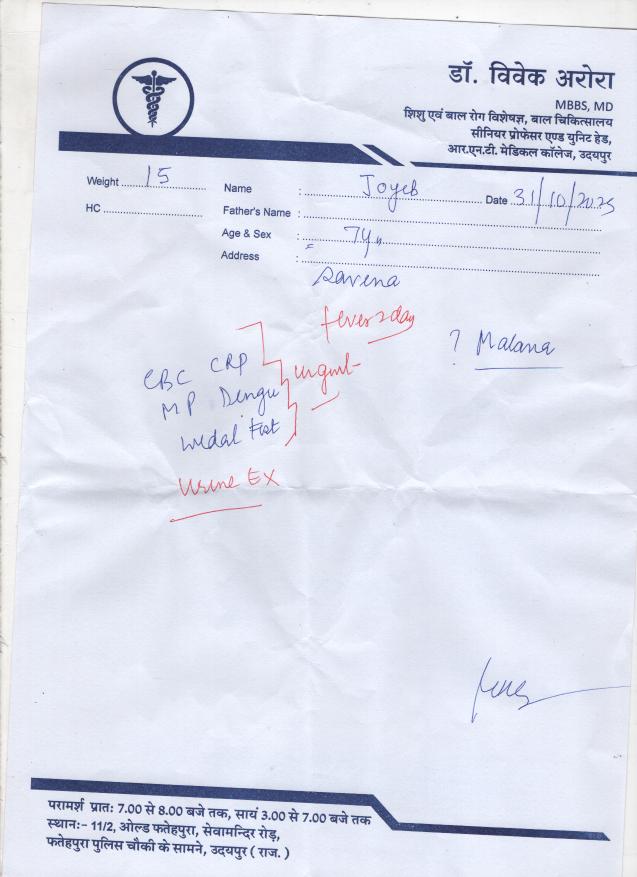 डॉ. विवेक अरोरा
MBBS, MD
शिशु एवं बाल रोग विशेषज्ञ, बाल चिकित्सालय
सीनियर प्रोफेसर एण्ड युनिट हेड,
आर.एन.टी. मेडिकल कॉलेज, उदयपुर
Weight 15 Name : Joyeb Date 31/10/2025
HC Father's Name :
Age & Sex : 7y
Address :
Savena
fever 2 day
? Malaria
CBC CRP
urgent
MP Dengu
widal Fist
Urine Ex
परामर्श प्रातः 7.00 से 8.00 बजे तक, सायं 3.00 से 7.00 बजे तक
स्थान:- 11/2, ओल्ड फतेहपुरा, सेवामन्दिर रोड़,
फतेहपुरा पुलिस चौकी के सामने, उदयपुर ( राज. )